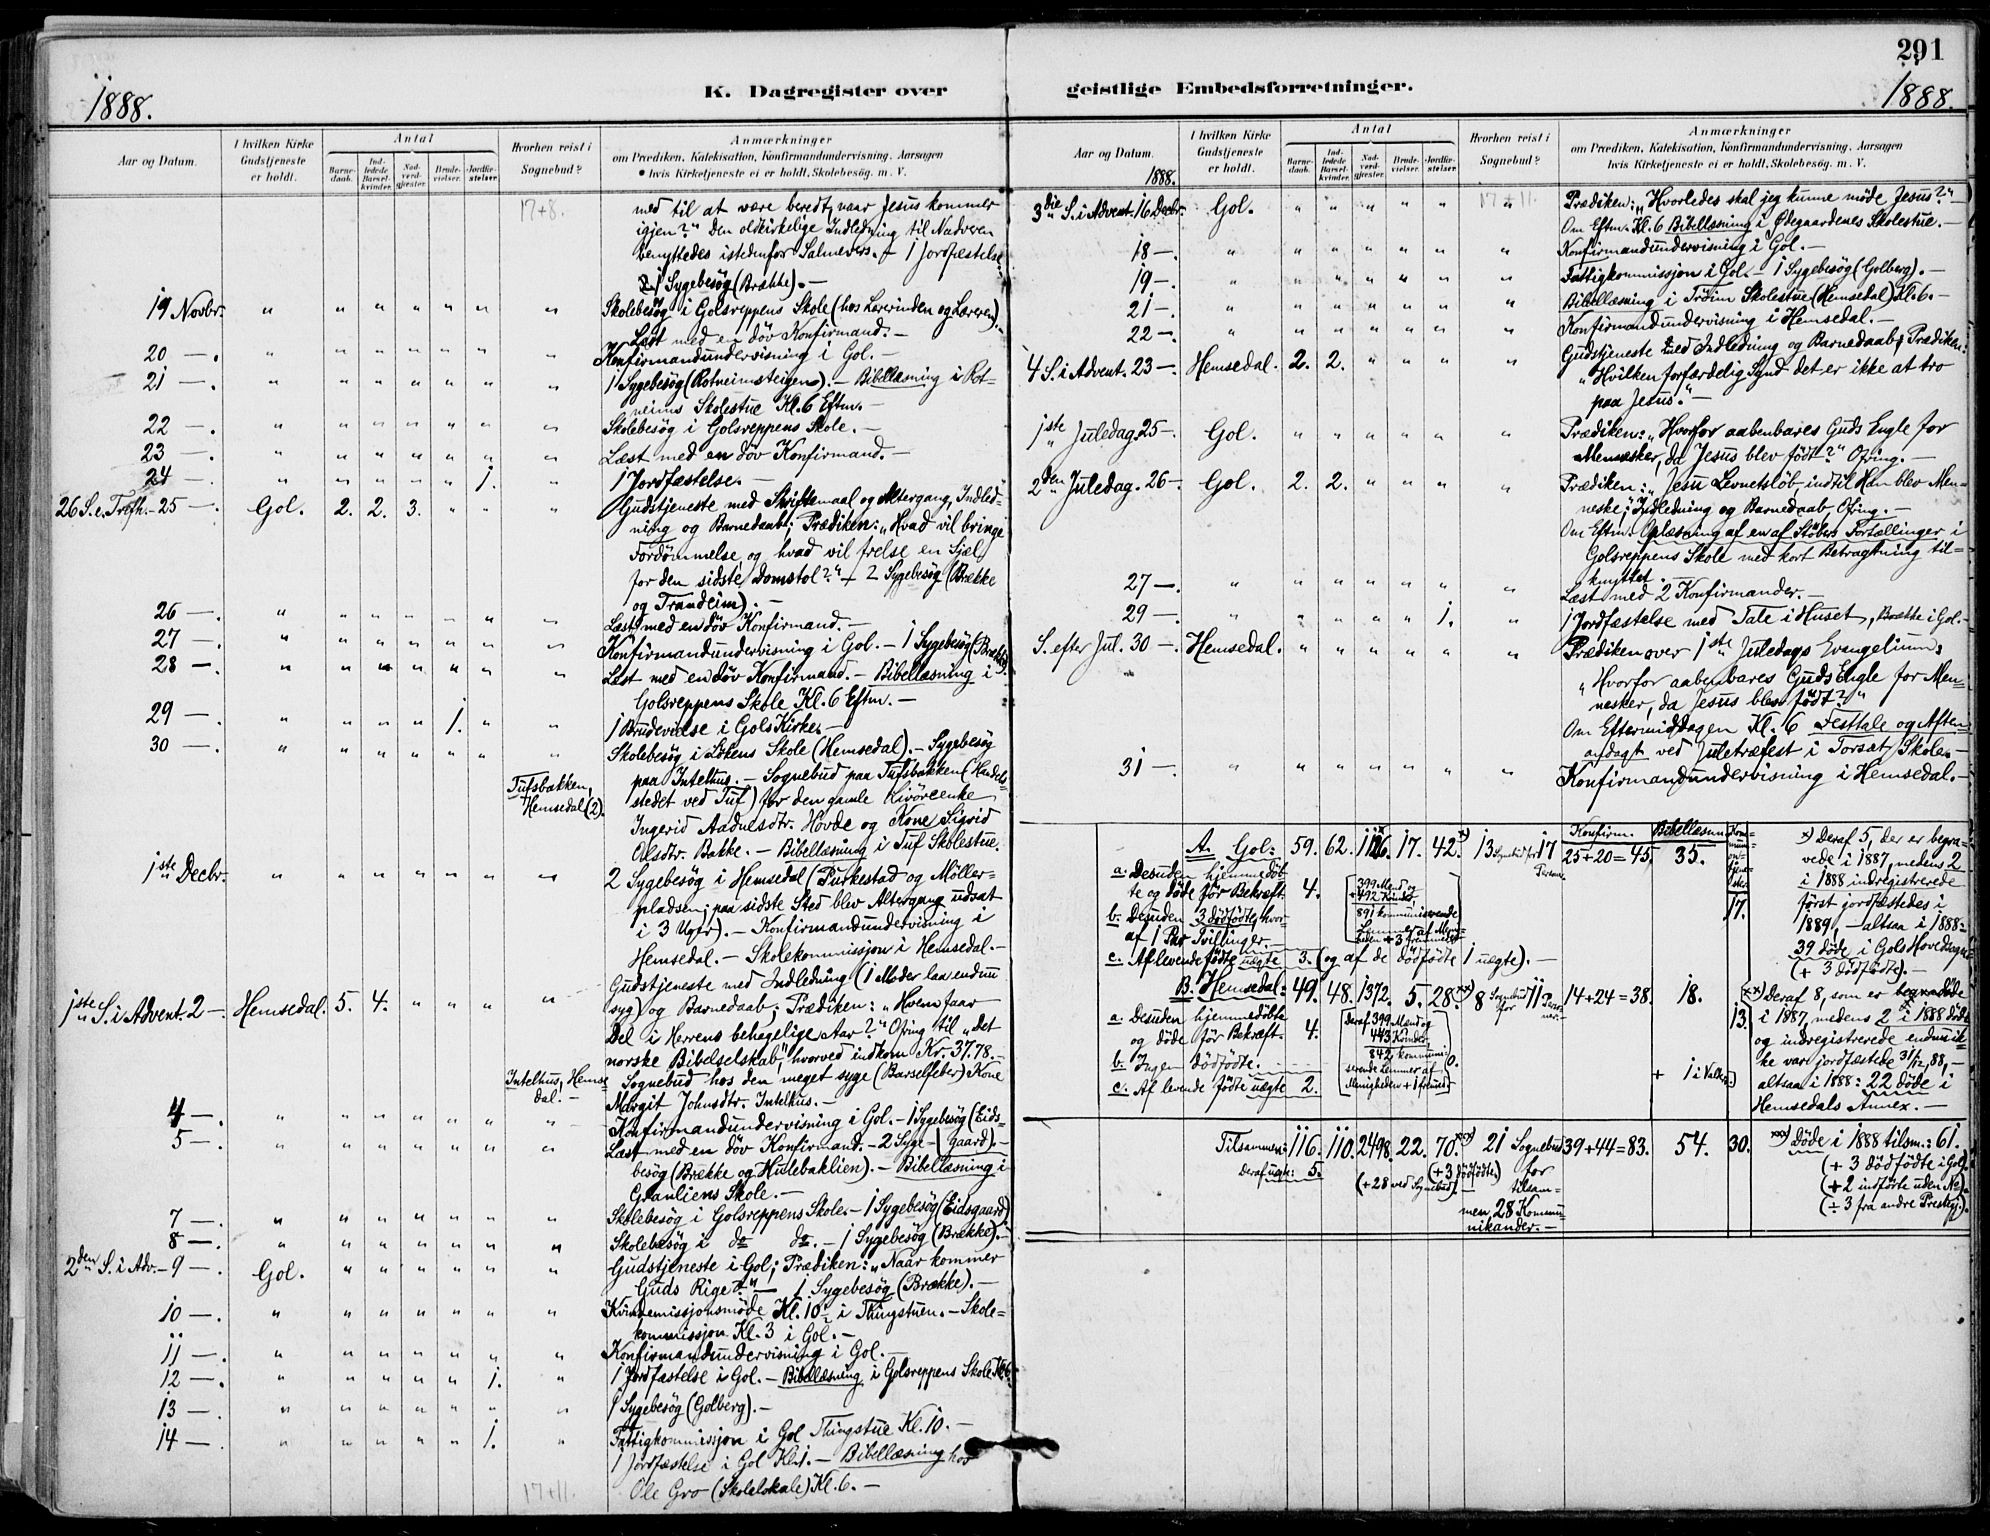 291
1888.
K. Dagregister over
geistlige Embedsforretninger.
1888.
Aar og Datum.
I hvilken Kirke Gudstjeneste er holdt.
Antal
Barne-daab.
Ind-ledede Barsel-kvinder.
Nad-verd-gjester.
Brude-vielser.
Jordfæ-stelser.
Hvorhen reist i Sognebud?
Anmærkninger
om Prædiken, Katekisation, Konfirmandundervisning, Aarsagen
hvis Kirketjeneste ei er holdt, Skolebesøg. m. V.
17+8.
med til at være beredt, naar Jesus kommer
igjen?" Den oldkirkelige Indledning til Nadveren
benyttedes istedenfor Salmevers. – 1 Jordfæstelse.
1 Sygebesøg (Brække). –
19 Novbr. " " " " " " " Skolebesøg i Golsreppens Skole (hos Lærerinden og Læreren).
Læst med en döv Konfirmand. –
20 —. " " " " " " " Konfirmandundervisning i Gol. –
21 —. " " " " " " " 1 Sygebesøg (Rotneimsteigen). – Bibellæsning i Rot-
neims Skolestue Kl. 6 Eftm. –
22 —. " " " " " " " Skolebesøg i Golsreppens Skole. –
23 —. " " " " " " " Læst med en döv Konfirmand. –
24 —. " " " " " 1. " 1 Jordfæstelse. –
26 S. e. Trefh. – 25 —. Gol. 2. 2. 3. " " " Gudstjeneste med Skriftemaal og Altergang, Indled-
ning og Barnedaab; Prædiken: "Hvad vil bringe
Fordømmelse, og hvad vil frelse en Sjel
for den sidste Domstol?" – 2 Sygebesøg (Brække
og Trandeim). –
26 —. " " " " " " " Læst med en döv Konfirmand. –
27 —. " " " " " " " Konfirmandundervisning i Gol. – 1 Sygebesøg (Brække).
28 —. " " " " " " " Læst med en döv Konfirmand. – Bibellæsning i
Golsreppens Skole Kl. 6 Eftm. –
29 —. " " " " 1. " " 1 Brudevielse i Gols Kirke. –
30 —. " " " " " " Skolebesøg i Lökens Skole (Hemsedal). – Sygebesøg
paa Intelhus. – Sognebud paa Tufsbakken (Handels-
Tufsbakken,
Hemsedal (2).
stedet ved Tuf) for den gamle Livöreenke
Ingerid Aadnesdtr. Hovde og Kone Sigrid
Olsdtr. Bakke. – Bibellæsning i Tuf Skolestue.
1ste Decbr. " " " " " " " 2 Sygebesøg i Hemsedal (Purkestad og Möller-
pladsen; paa sidste Sted blev Altergang udsat
i 3 Uger). – Konfirmandundervisning i
Hemsedal. – Skolekommissjon i Hemsedal. –
1ste S. i Advent. 2 —. Hemsedal. 5. 4. " " " " Gudstjeneste med Indledning (1 Moder laa endnu
syg) og Barnedaab; Prædiken: "Hvem faar
Del i Herrens behagelige Aar?" Ofring til "Det
norske Bibelselskab," hvorved indkom Kr. 37.78. –
Intelhus, Hemse-
dal. –
Sognebud hos den meget syge (Barselfeber) Kone
Margit Johnsdtr. Intelhus. –
4 —. " " " " " " " Konfirmandundervisning i Gol. – 1 Sygebesøg (Eids-
gaard). –
5 —. " " " " " " " Læst med en döv Konfirmand. – 2 Syge-
besøg (Brække og Hulebaklien). – Bibellæsning i
Granliens Skole. –
7 —. " " " " " " " Skolebesøg i Golsreppens Skole. – 1 Sygebesøg (Eidsgaard)
8 —. " " " " " " " Skolebesøg i do do. – 1 Sygebesøg (Brække). –
2den S. i Adv. – 9 —. Gol. " " " " " " Gudstjeneste i Gol; Prædiken: "Naar kommer
Guds Rige?" – 1 Sygebesøg (Brække). –
10 —. " " " " " " " Kvindemissjonsmöde Kl. 10 i Thingstuen. – Skole-
kommissjon Kl. 3 i Gol. –
11 —. " " " " " " " Konfirmandundervisning i Gol. –
12 —. " " " " " 1. " 1 Jordfæstelse i Gol. – Bibellæsning i Golsreppens Skole Kl. 6.
13 —. " " " " " " " 1 Sygebesøg (Golberg). –
14 —. " " " " " 1. " Fattigkommissjon i Gol Thingstue Kl. 10. –
1 Jordfæstelse i Gol Kl. 1. – Bibellæsning hos
17+11.
Ole Gro (Skolelokale) Kl. 6. –
Aar og Datum.
1888.
I hvilken Kirke Gudstjeneste er holdt.
Antal
Barne-daab.
Ind-ledede Barsel-kvinder.
Nad-verd-gjester.
Brude-vielser.
Jordfæ-stelser.
Hvorhen reist i Sognebud?
Anmærkninger
om Prædiken, Katekisation, Konfirmandundervisning, Aarsagen
hvis Kirketjeneste ei er holdt, Skolebesøg. m. V.
17+11.
3die S. i Advent. 16 Decbr. Gol. " " " " " " Prædiken: "Hvorledes skal jeg kunne møde Jesus?"
Om Eftm. Kl. 6 Bibellæsning i Ødegaardenes Skolestue. –
18 —. " " " " " " " Konfirmandundervisning i Gol. –
19 —. " " " " " " " Fattigkommissjon i Gol. – 1 Sygebesøg (Golberg). –
21 —. " " " " " " " Bibellæsning i Tröim Skolestue (Hemsedal) Kl. 6. –
22 —. " " " " " " Konfirmandundervisning i Hemsedal. –
4 S. i Advent. 23 —. Hemsedal. 2. 2. " " " " Gudstjeneste med Indledning og Barnedaab; Prædiken:
"Hvilken forfærdelig Synd det er ikke at tro
paa Jesus." –
1ste Juledag. 25 —. Gol. " " " " " " Prædiken: "Hvorfor aabenbares Guds Engle for
Mennesker, da Jesus blev født?" Ofring. –
2den Juledag. 26 —. Gol. 2. 2. " " " " Prædiken: "Jesu Levnetsløb, indtil Han blev Men-
neske;" Indledning og Barnedaab. Ofring. –
Om Eftm. Oplæsning af en af Stöbers Fortællinger i
Golsreppens Skole med kort Betragtning til-
knyttet. –
27 —. " " " " " " " Læst med 2 Konfirmander. –
29 —. " " " " " 1. " 1 Jordfæstelse med Tale i Huset, Brække i Gol. –
S. efter Jul. 30 —. Hemsedal. " " " " " " Prædiken over 1ste Juledags Evangelium:
"Hvorfor aabenbares Guds Engle for Men-
nesker, da Jesus blev født?"
Om Eftermiddagen Kl. 6 Festtale og Aften-
andagt ved Juletræfest i Torset Skole. –
31 —. " " " " " " " Konfirmandundervisning i Hemsedal. –
Konfirm. Bibellæsn.
A. Gol: 59. 62. 1126. 17. 42. x) 13 Sognebud for 17 Personer. 25+20=45. 35. 17.
a. Desuden hjemmedöb-
te og döde før Bekræft. 4.
399 Mænd og
+492 Kvinder
891 kommunicerende
Lemmer af Menig-
heden + 3 fremmede
b. Desuden 3 dødfödte, hvor-
af 1 Par Tvillinger. –
c. Af levende fødte uægte 3. (og af de dödfödte 1 uægte). –
x) Deraf 5, der er begra-
vede i 1887, medens 2
i 1888 indregistrerede
först jordfæstedes i
1889, – altsaa i 1888:
39 döde i Gols Hovedsogn
(+ 3 dødfødte). –
B. Hemsedal: 49. 48. 1372. 5. 28. xx) 8 Sognebud for 11 Personer. 14+24=38. 18. 13.
a. Desuden hjemmedöbte
og døde før Bekræft. 4.
deraf 399 Mænd og
443 Kvinder
842 kommuni-
cerende Lemmer af
Menigheden + 1 fremd.
b. Ingen dødfödte. 0.
c. Af levende fødte uægte 2.
+ 1 i Valdres)
xx) Deraf 8, som er døde
i 1887, medens 2 i 1888 døde
og indregistrerede endnu ik-
ke var jordfæstede 31/12 88, –
altsaa i 1888: 22 döde i
Hemsedals Annex. –
Tilsammen: 116. 110. 2498. 22. 70. xxx) 21 Sognebud 39+44=83. 54. 30.
Deraf uægte: 5.
(+28 ved Sognebud). –
(+3 dödfödte)
for
tilsam-
men 28 Kommu-
nikander. –
xxx) Döde i 1888 tilsm.: 61.
(+ 3 dödfödte i Gol).
(+ 2 indförte uden No).
(÷ 3 fra andre Prestegj.).